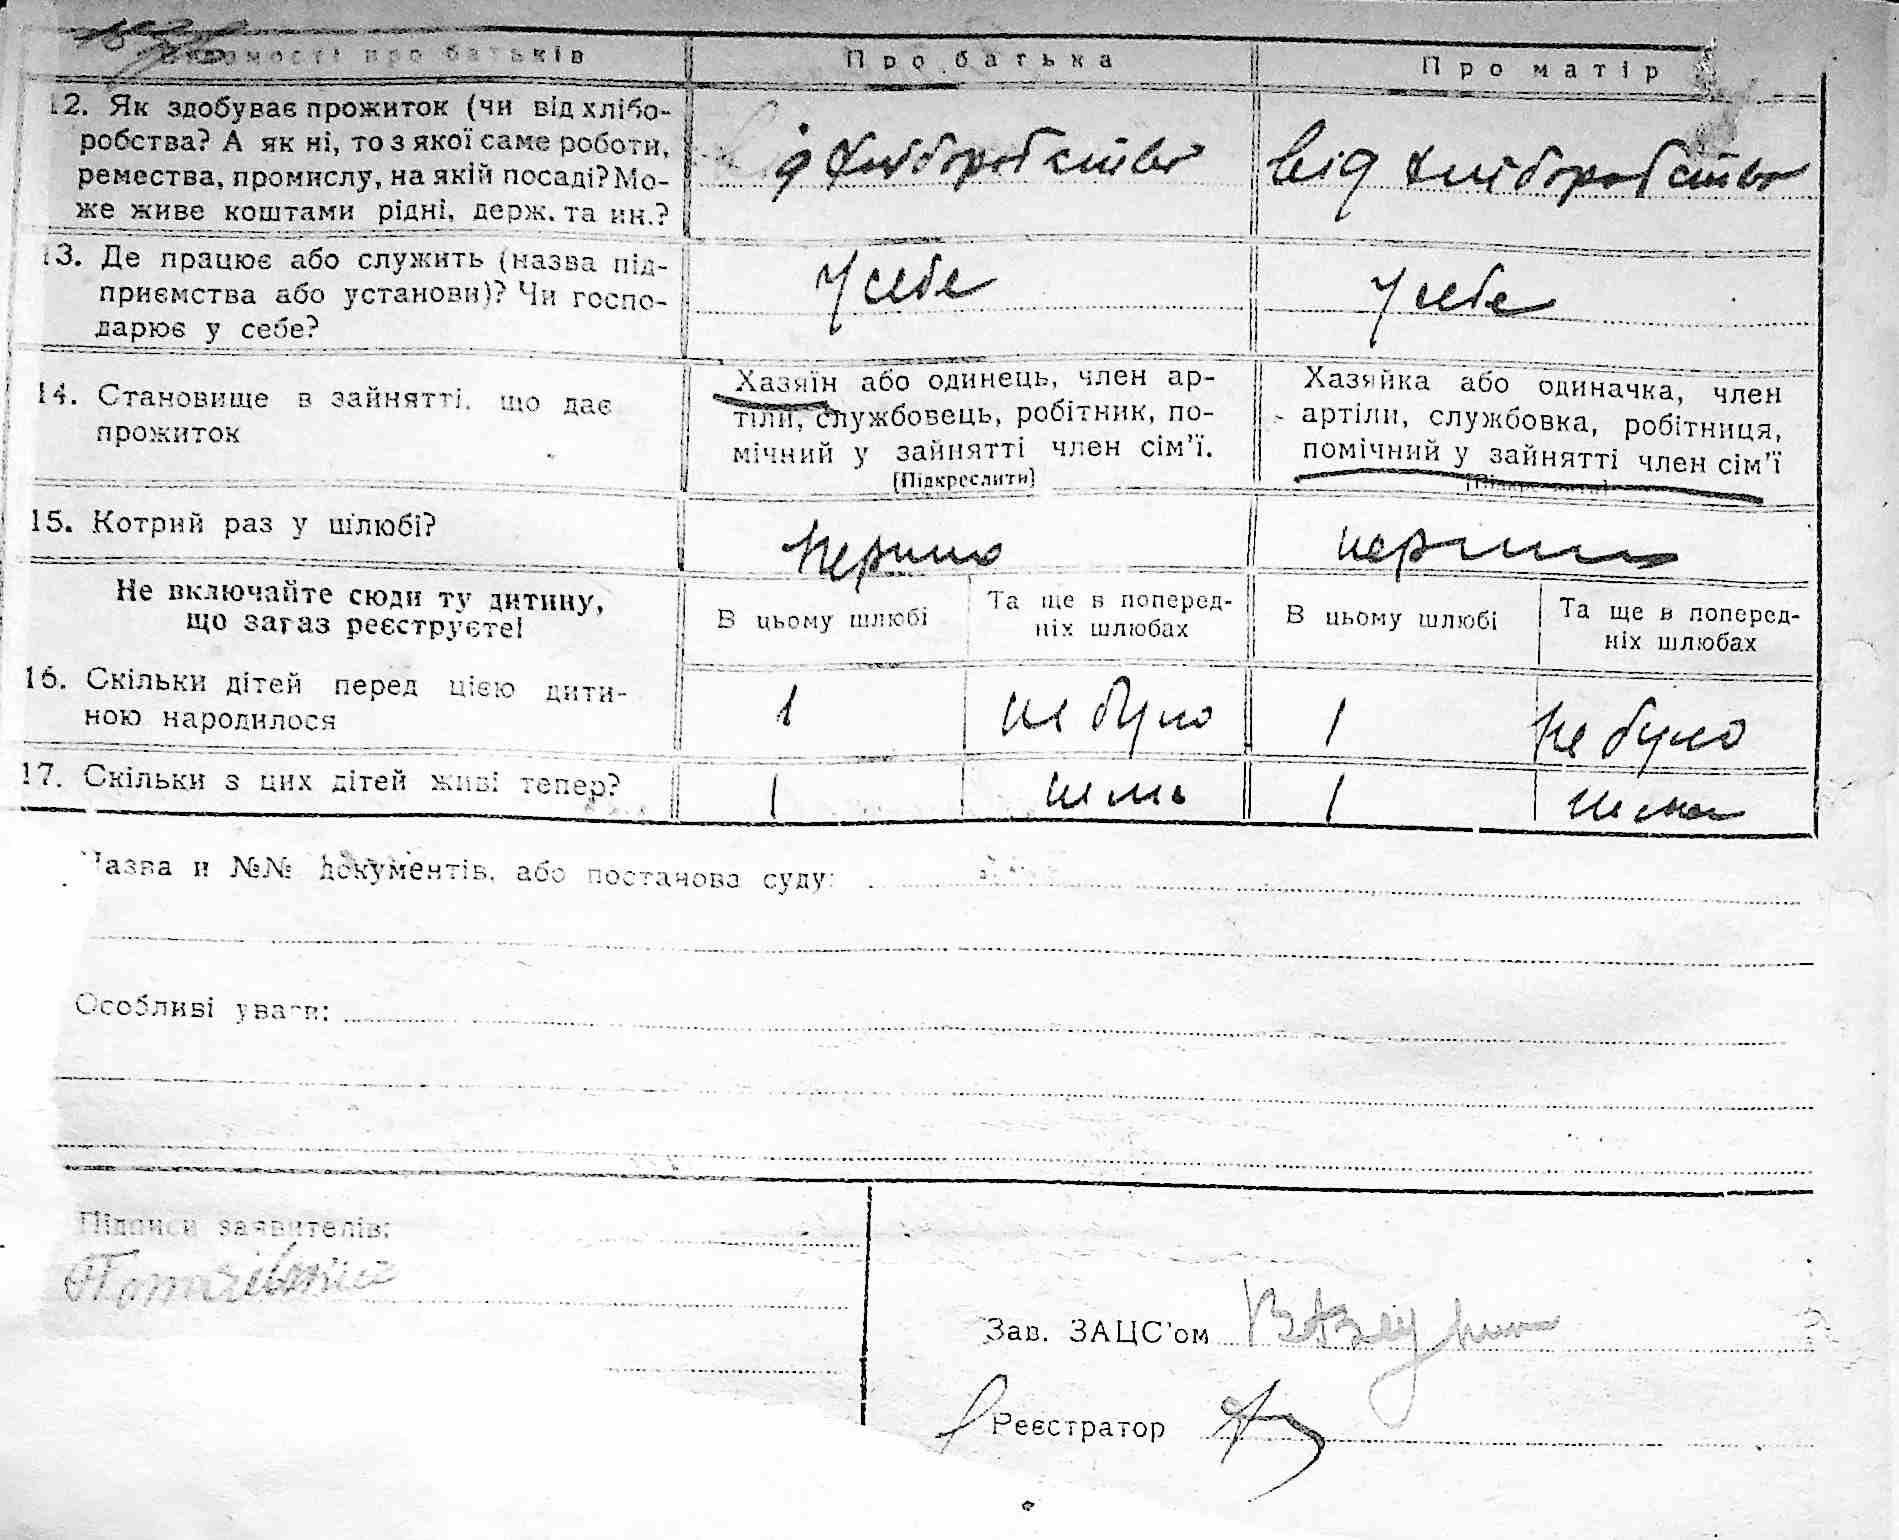 Відомості про батьків Про батька Про матір
12. Як здобуває прожиток (чи від хлібо-
робства? А як ні, то з якої саме роботи,
ремества, промислу, на якій посаді? Мо-
же живе коштами рідні, держ. та ин.?
від хліборобства від хліборобства
13. Де працює або служить (назва під-
приємства або установи)? Чи госпо-
дарює у себе?
у себе у себе
14. Становище в зайнятті, що дає
прожиток
Хазяїн або одинець, член ар-
тіли, службовець, робітник, по-
мічний у зайнятті член сім'ї.
(Підкреслити)
Хазяйка або одиначка, член
артіли, службовка, робітниця,
помічний у зайнятті член сім'ї
(Підкреслити)
15. Котрий раз у шлюбі?
перший перший
Не включайте сюди ту дитину,
що зараз реєструєте!
В цьому шлюбі
Та ще в поперед-
ніх шлюбах
В цьому шлюбі
Та ще в поперед-
ніх шлюбах
16. Скільки дітей перед цією дити-
ною народилося
1 не було 1 не було
17. Скільки з цих дітей живі тепер?
1 нема 1 нема
Назва и №№ документів, або постанова суду:
Особливі уваги:
Підписи заявителів:
Зав. ЗАЦС'ом
Реєстратор